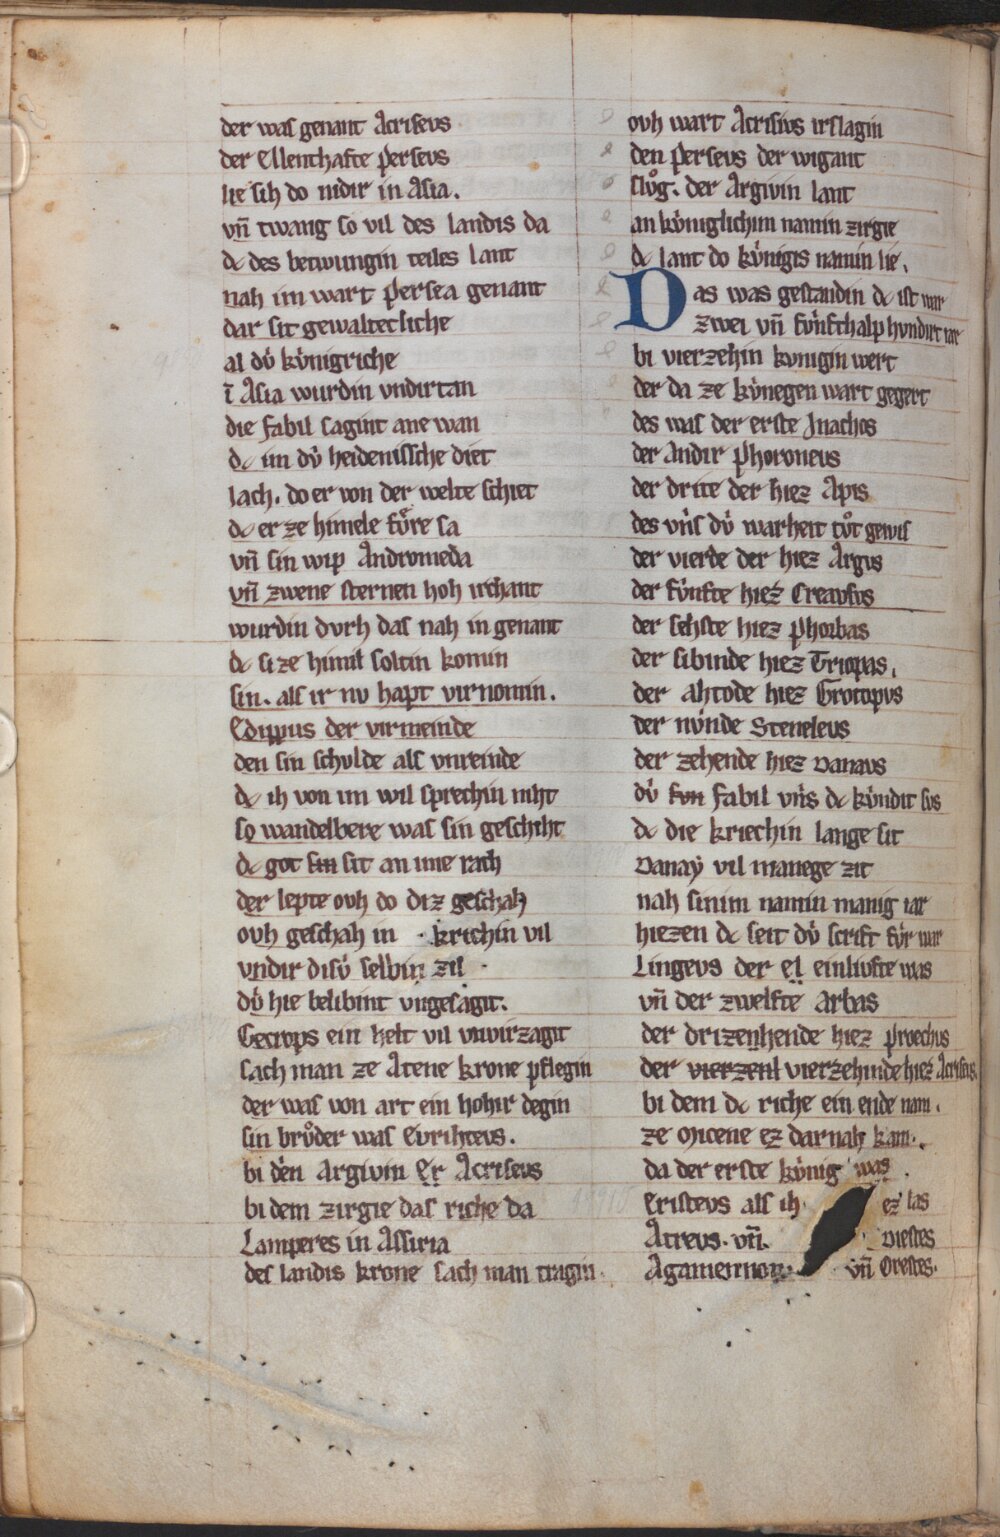 der was genant Acriseus
der Ellenthafte perseus
lie sih do nidir in Asia.
vn̄ twang so vil des landis da
dc des betwungin teiles lant
nah im wart persea genant
dar sit gewaltecliche
al dv́ kv́nigriche
ī Asia wurdin vndirtan
die fabil sagint ane wan
dc im dv́ heidenissche diet
iach. do er von der welte schiet
dc er ze himele fv́re sa
vn̄ sin wip Andromeda
vn̄ zwene sternen hoh irchant
wurdin dvrh das nah in genant
dc si ze himil soltin komin
sin. als ir nv hapt virnomin.
Edippus der virmeinde
den sin schvlde als vnreinde
dc ih von im wil sprechin niht
so wandelbere was sin geschiht
dc got sin sit an ime rach
der lepte ovh do diz geschah
ovh geschah in krichin vil
vndir disv́ selbin zil
dv́ hie belibint vngesagit.
Cecrops ein helt vil vnvirzagit
sach man ze Atene krone pflegin
der was von art ein hohir degin
sin brvͦder was Evrihtevs.
bi den Argivin Er Acrisevs
bi dem zirgie das riche da
Lamperes in Assiria
des landis krone sach man tragin
ovh wart Acrisivs irslagin
den persevs der wigant
slvͦg. der Argivin lant
an kv́niglichim namin zirgie
dc lant do kv́nigis namin lie.
Das was gestandin dc ist war
zwei vn̄ fv́nfthalp hvndirt iar
bi vierzehin kvnigin wert
der da ze kv́negen wart gegert
des was der erste Jnachos
der Andir phoronevs
der drite der hiez Apis
des vn̄s dv́ warheit tvͦt gewis
der vierde der hiez Argvs
der fv́nfte hiez Creavsvs
der sehste hiez phorbas
der sibinde hiez Triopas.
der ahtode hiez Crotopvs
der nv́nde Stenelevs
der zehende hiez Danavs
dv́ kvn fabil vn̄s dc kv́ndit svs
dc die kriechin lange sit
Danaẏ vil manege zit
nah sinim namin manig iar
hiezen dc seit dv́ scrift fv́r war
Lingevs der el einlivfte was
vn̄ der zwelfte Arbas
der drizenhende hiez proechvs
der vierzenl vierzehinde hiez Acrisivs
bi dem dc riche ein ende nam.
ze Micene ez dar nah kam.
da der erste kv́nig was
Eristevs als ih ez las
Atrevs. vn̄. viestes
Agamennon. vn̄ Orestes.